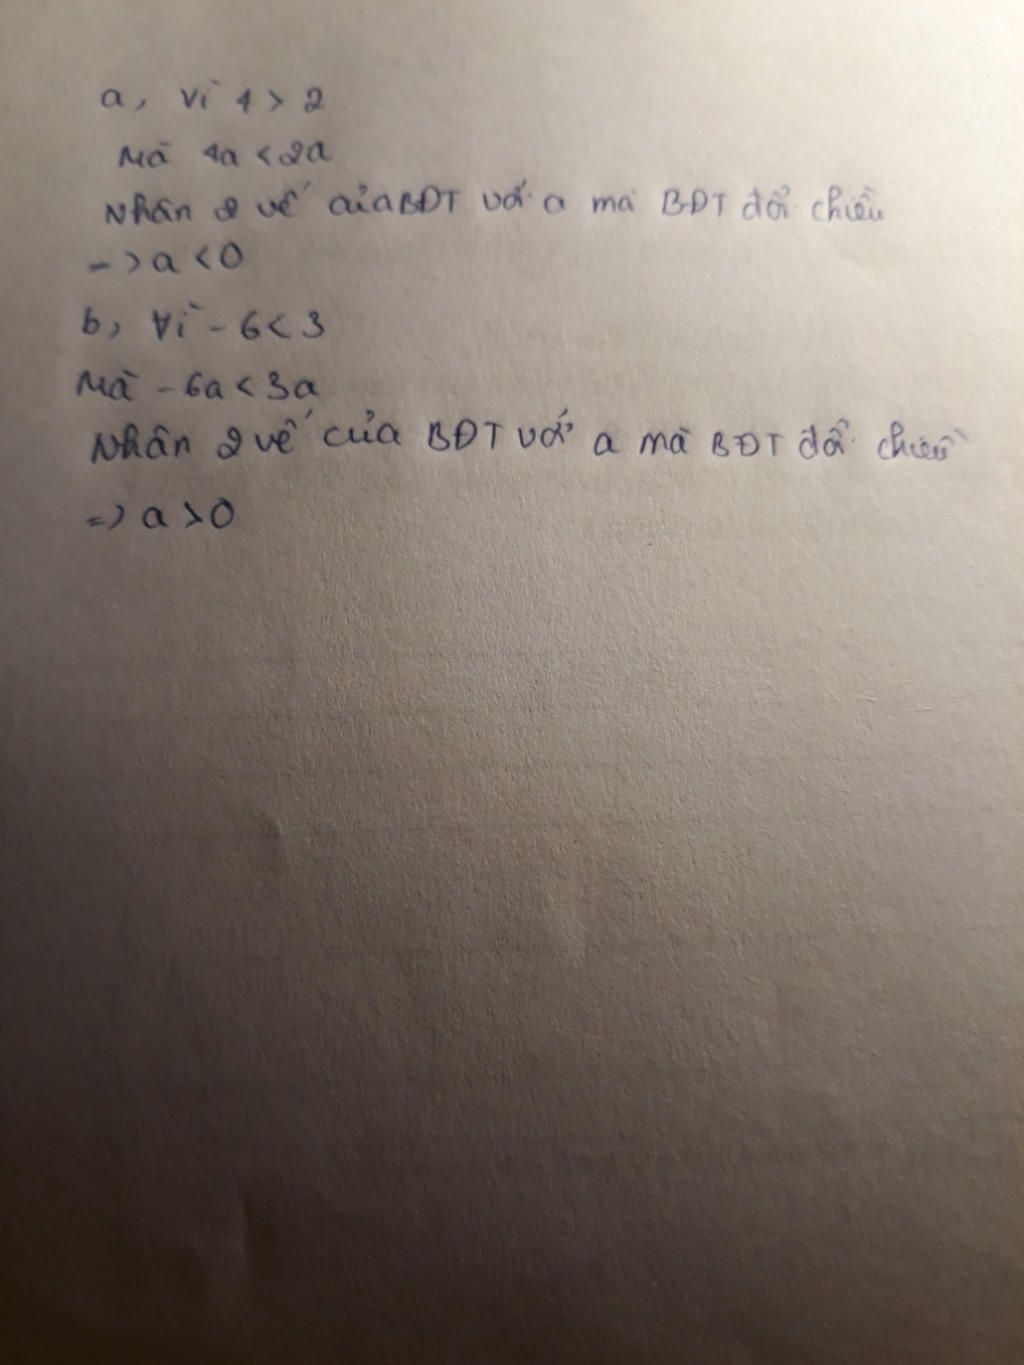 a, vì 4 > 2
Mà 4a < 2a
Nhân 2 vế của BĐT với a mà BĐT đổi chiều
-> a < 0
b, Vì -6 < 3
Mà -6a < 3a
Nhân 2 vế của BĐT với a mà BĐT đổi chiều
=> a > 0